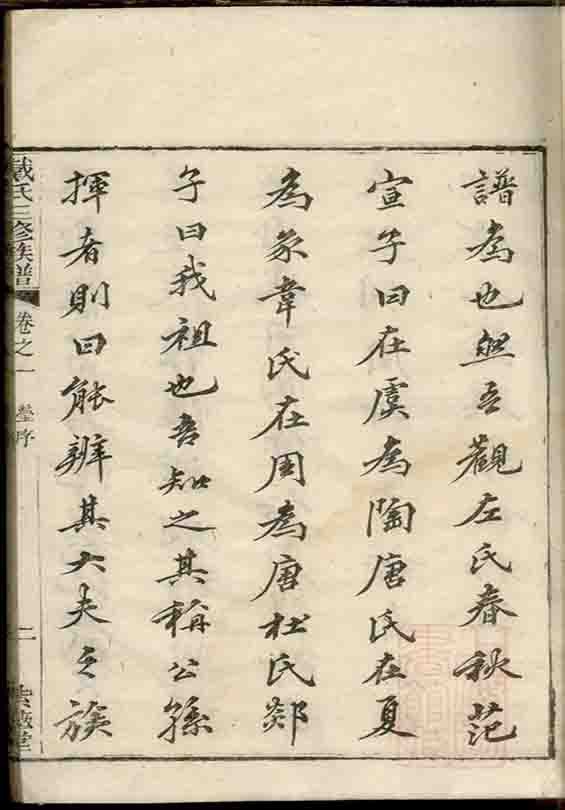 譜為也然吾觀左氏春秋范
宣子曰在虞為陶唐氏在夏
為豕韋氏在周為唐杜氏郯
子曰我祖也吾知之其稱公孫
揮者則曰能辨其大夫之族
戴氏三修族譜 卷之一 序 二